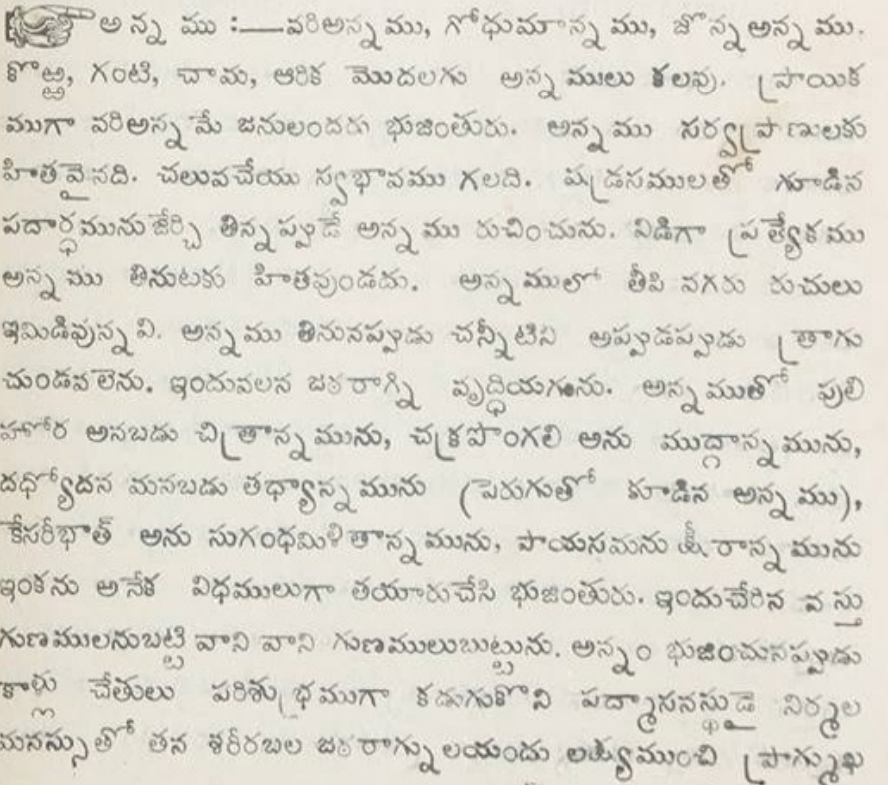 అన్నము :—వరిఅన్నము, గోధుమాన్నము, జొన్నఅన్నము.
కొఱ్ఱ, గంటి, చామ, ఆరిక మొదలగు అన్నములు కలవు. ప్రాయిక
ముగా వరిఅన్నమే జనులందరు భుజింతురు. అన్నము సర్వప్రాణులకు
హితవైనది. చలువచేయు స్వభావము గలది. షడ్రసములతో గూడిన
పదార్థమునుజేర్చి తిన్నప్పుడే అన్నము రుచించును. విడిగా ప్రత్యేకము
అన్నము తినుటకు హితవుండదు. అన్నములో తీపి వగరు రుచులు
ఇమిడివున్నవి. అన్నము తినునప్పుడు చన్నీటిని అప్పుడప్పుడు త్రాగు
చుండవలెను. ఇందువలన జఠరాగ్ని వృద్ధియగును. అన్నముతో పులి
హోర అనబడు చిత్రాన్నమును, చక్రపొంగలి అను ముద్గాన్నమును,
దధ్యోదన మనబడు తధ్యాన్నమును (పెరుగుతో కూడిన అన్నము),
కేసరీభాత్ అను సుగంధమిళితాన్నమును, పాయసమను క్షీరాన్నమును
ఇంకను అనేక విధములుగా తయారుచేసి భుజింతురు. ఇందుచేరిన వస్తు
గుణములనుబట్టి వాని వాని గుణములుబుట్టును. అన్నం భుజించునప్పుడు
కాళ్లు చేతులు పరిశుభ్రముగా కడుగుకొని పద్మాసనస్థుడై నిర్మల
మనస్సుతో తన శరీరబల జఠరాగ్నులయందు లక్ష్యముంచి ప్రాగ్ముఖ